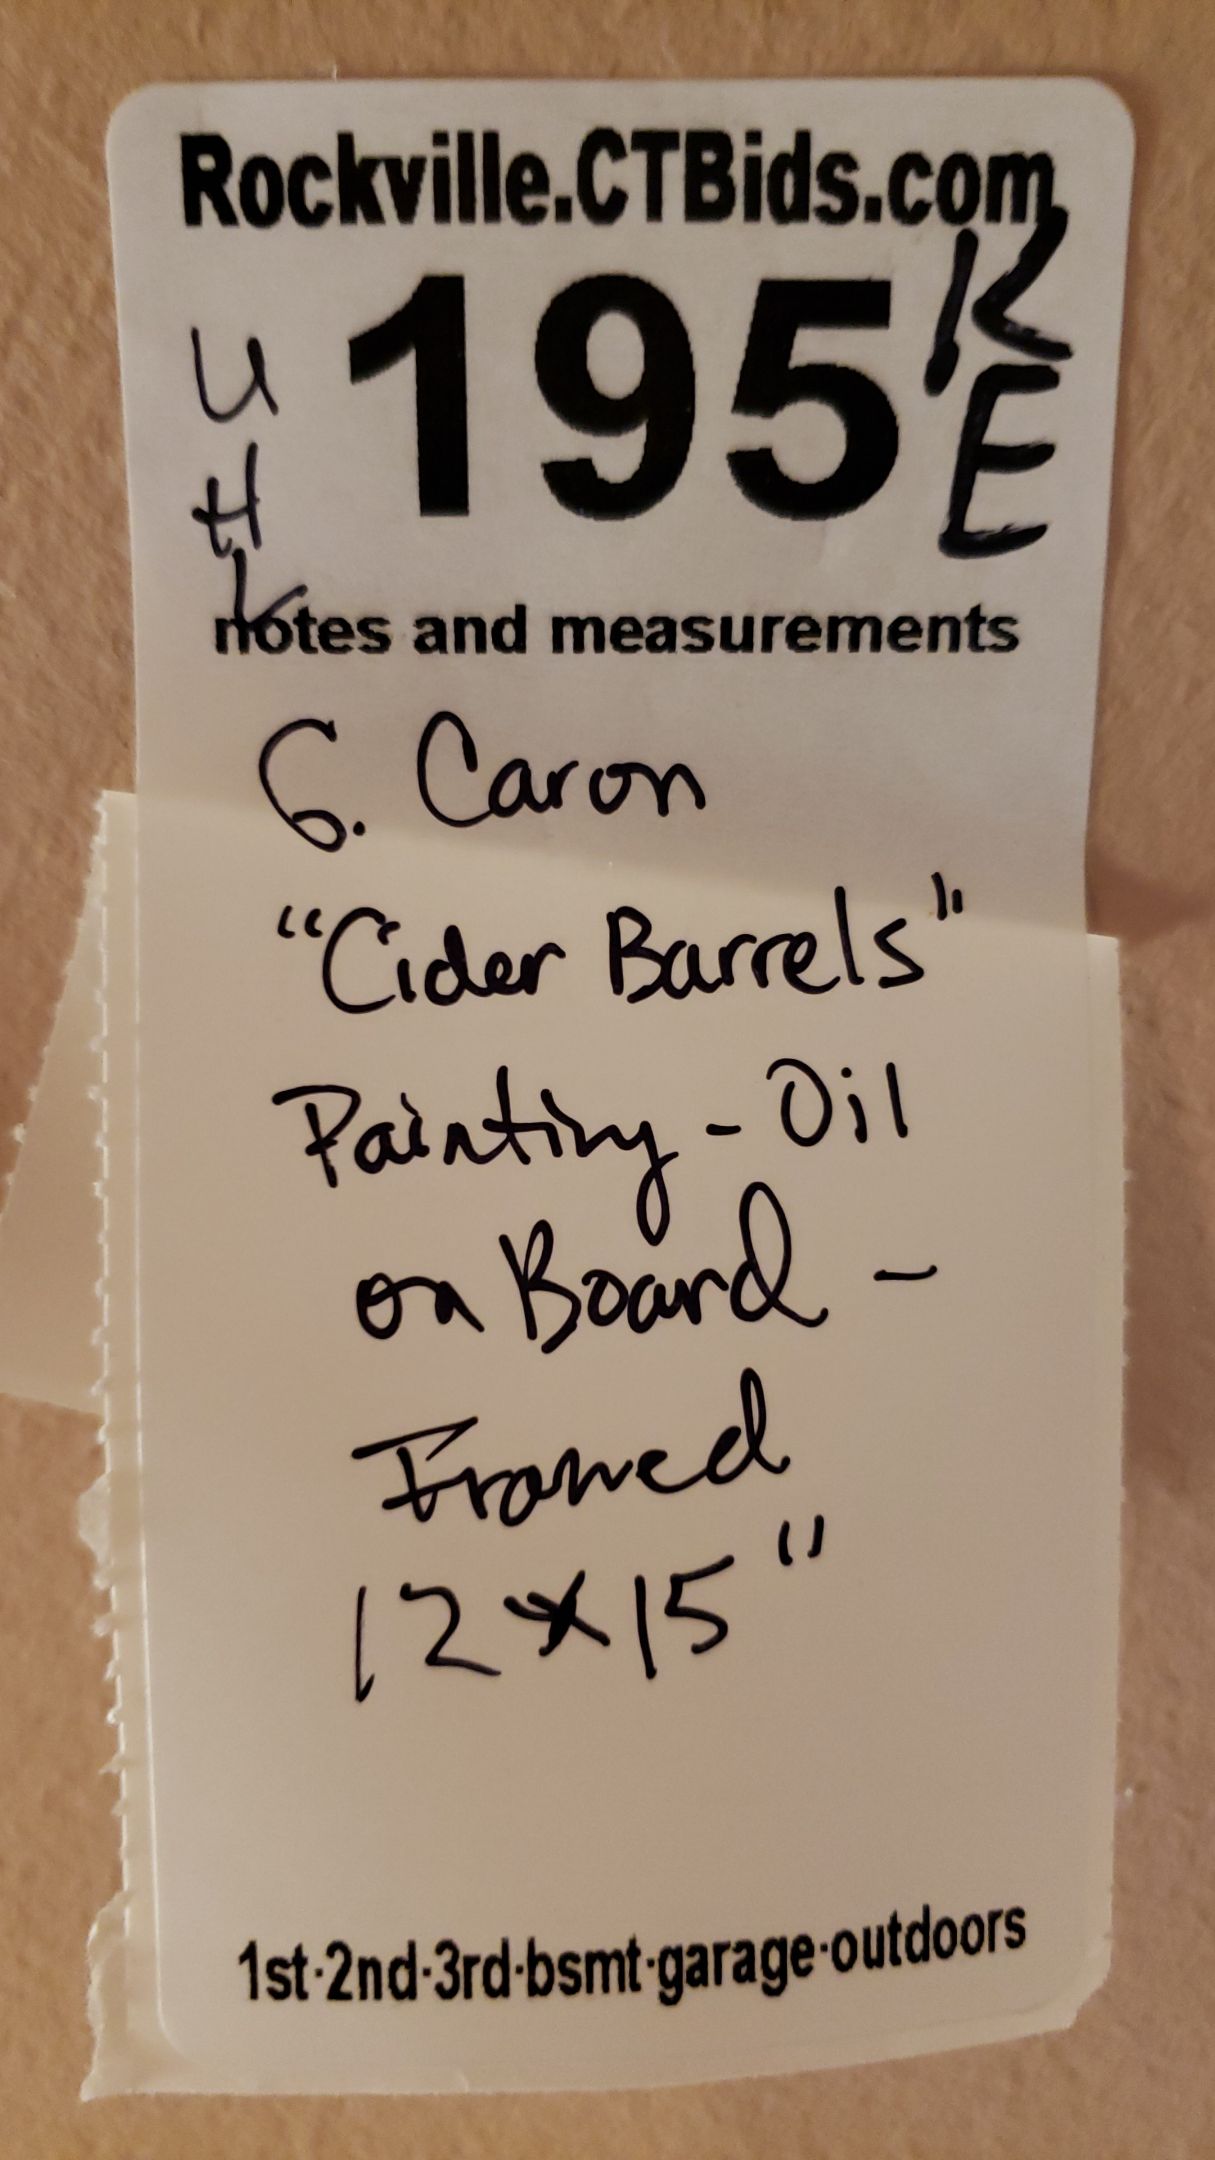 Rockville.CTBids.com
195
RE
notes and measurements
G. Caron
"Cider Barrels"
Painting - Oil
on Board -
Framed
12 x 15"
1st·2nd·3rd·bsmt·garage·outdoors